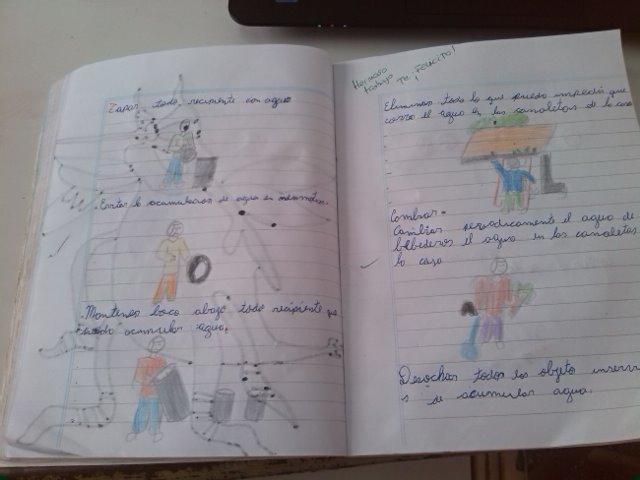 Tapar todo recipiente con agua
. Evitar la acumulacion de agua en
. Mantener boca abajo todo recipiente que
pueda acumular agua.
Hermoso
trabajo Te felicito!
Eliminar todo lo que pueda impedir que
corra el agua en las canaletas de la casa
Cambiar
Cambiar periodicamente el agua de
bebederos el agua en las canaletas
la casa
Desechar todos los objeto
de acumular agua.